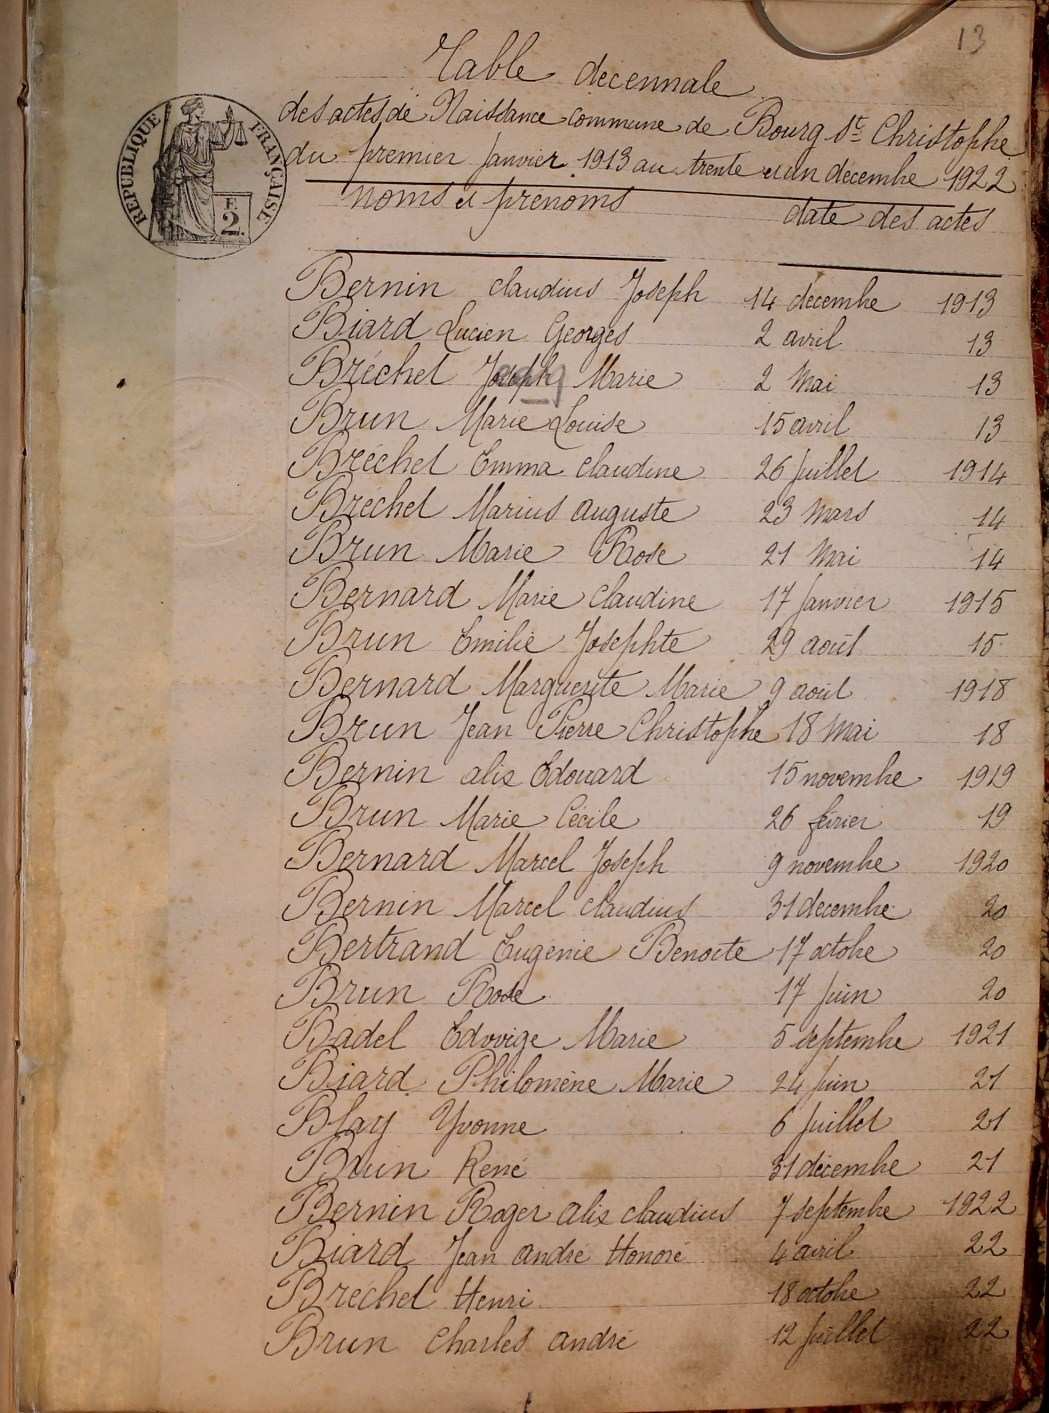 13
Table décennale
des actes de Naissance commune de Bourg-St Christophe
du premier Janvier 1913 au trente et un décembre 1922
RÉPUBLIQUE FRANÇAISE
F.
2.
noms et prénoms date des actes
Bernin claudius Joseph 14 décembre 1913
Biard Lucien Georges 2 avril 13
Bréchet Joseph Marie 2 Mai 13
Brun Marie Louise 15 avril 13
Bréchet Emma claudine 26 Juillet 1914
Bréchet Marius auguste 23 Mars 14
Brun Marie Rose 21 Mai 14
Bernard Marie claudine 17 Janvier 1915
Brun Emilie Josephte 29 août 15
Bernard Marguerite Marie 9 août 1918
Brun Jean Pierre Christophe 18 Mai 18
Bernin alis Edouard 15 novembre 1919
Brun Marie Cécile 26 févier 19
Bernard Marcel Joseph 9 novembre 1920
Bernin Marcel claudius 31 décembre 20
Bertrand Eugenie Benoite 17 octobre 20
Brun Rose 17 Juin 20
Badel Edvvige Marie 5 septembre 1921
Biard Philomène Marie 24 Juin 21
Blay Yvonne 6 Juillet 21
Brun René 31 décembre 21
Bernin Roger alis claudius 7 septembre 1922
Biard Jean andré Honoré 4 avril 22
Bréchet Henri 18 octobre 22
Brun Charles andré 12 Juillet 22